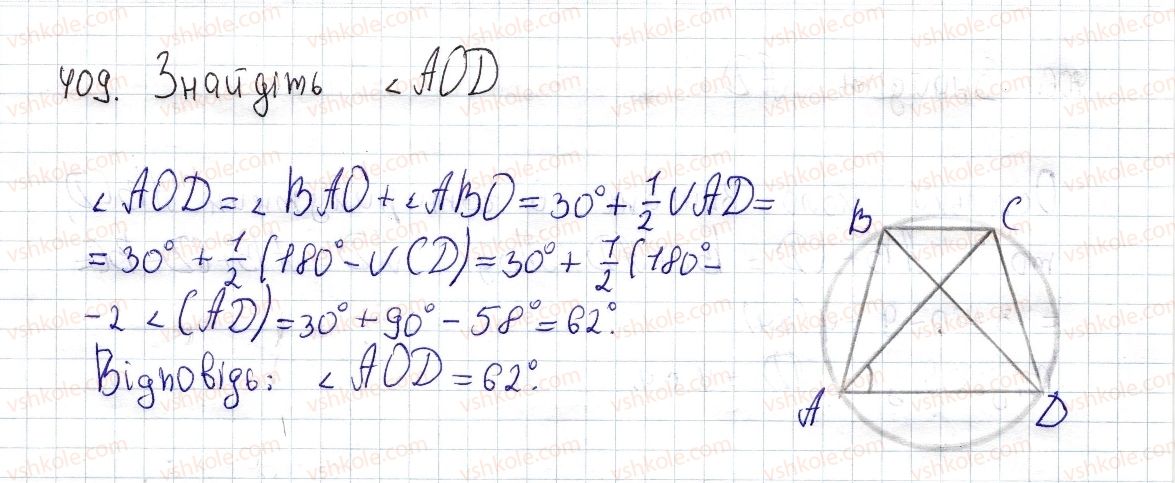 409. Знайдіть ∠AOD
∠AOD = ∠BAO + ∠ABO = 30° + 1/2 ∪AD =
= 30° + 1/2 (180° - ∪CD) = 30° + 1/2 (180° -
- 2 ∠(AD) = 30° + 90° - 58° = 62°.
Відповідь: ∠AOD = 62°.
B C
A D
vshkole.com